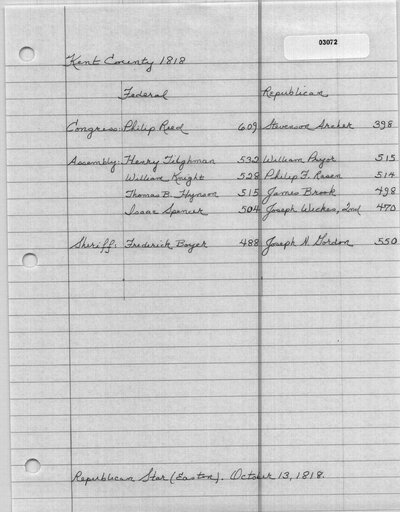 03072
Kent County 1818
Federal Republican
Congress: Philip Reed 609 Stevenson Archer 398
Assembly: Henry Tilghman 532 William Pryor 515
William Knight 528 Philip F. Rasen 514
Thomas B. Hynson 515 James Brook 498
Isaac Spencer 504 Joseph Wickes, 2nd 470
Sheriff: Frederick Boyer 488 Joseph N. Gordon 550
Republican Star (Easton). October 13, 1818.